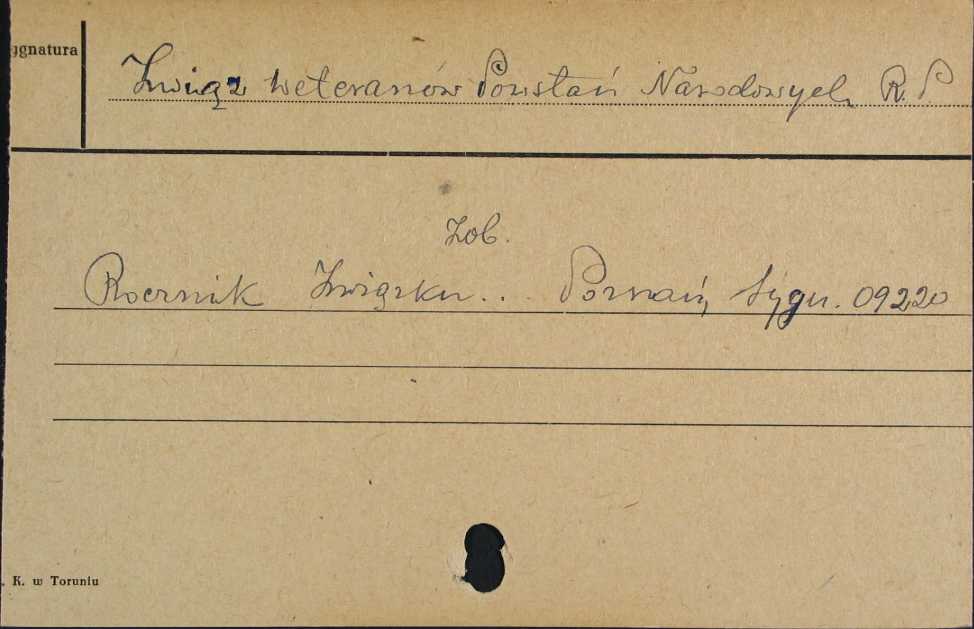 ygnatura
Związ weteranów Powstań Narodowych R. P.
Zob.
Rocznik Związku... Poznań, Sygn. 09220
. K. w Toruniu